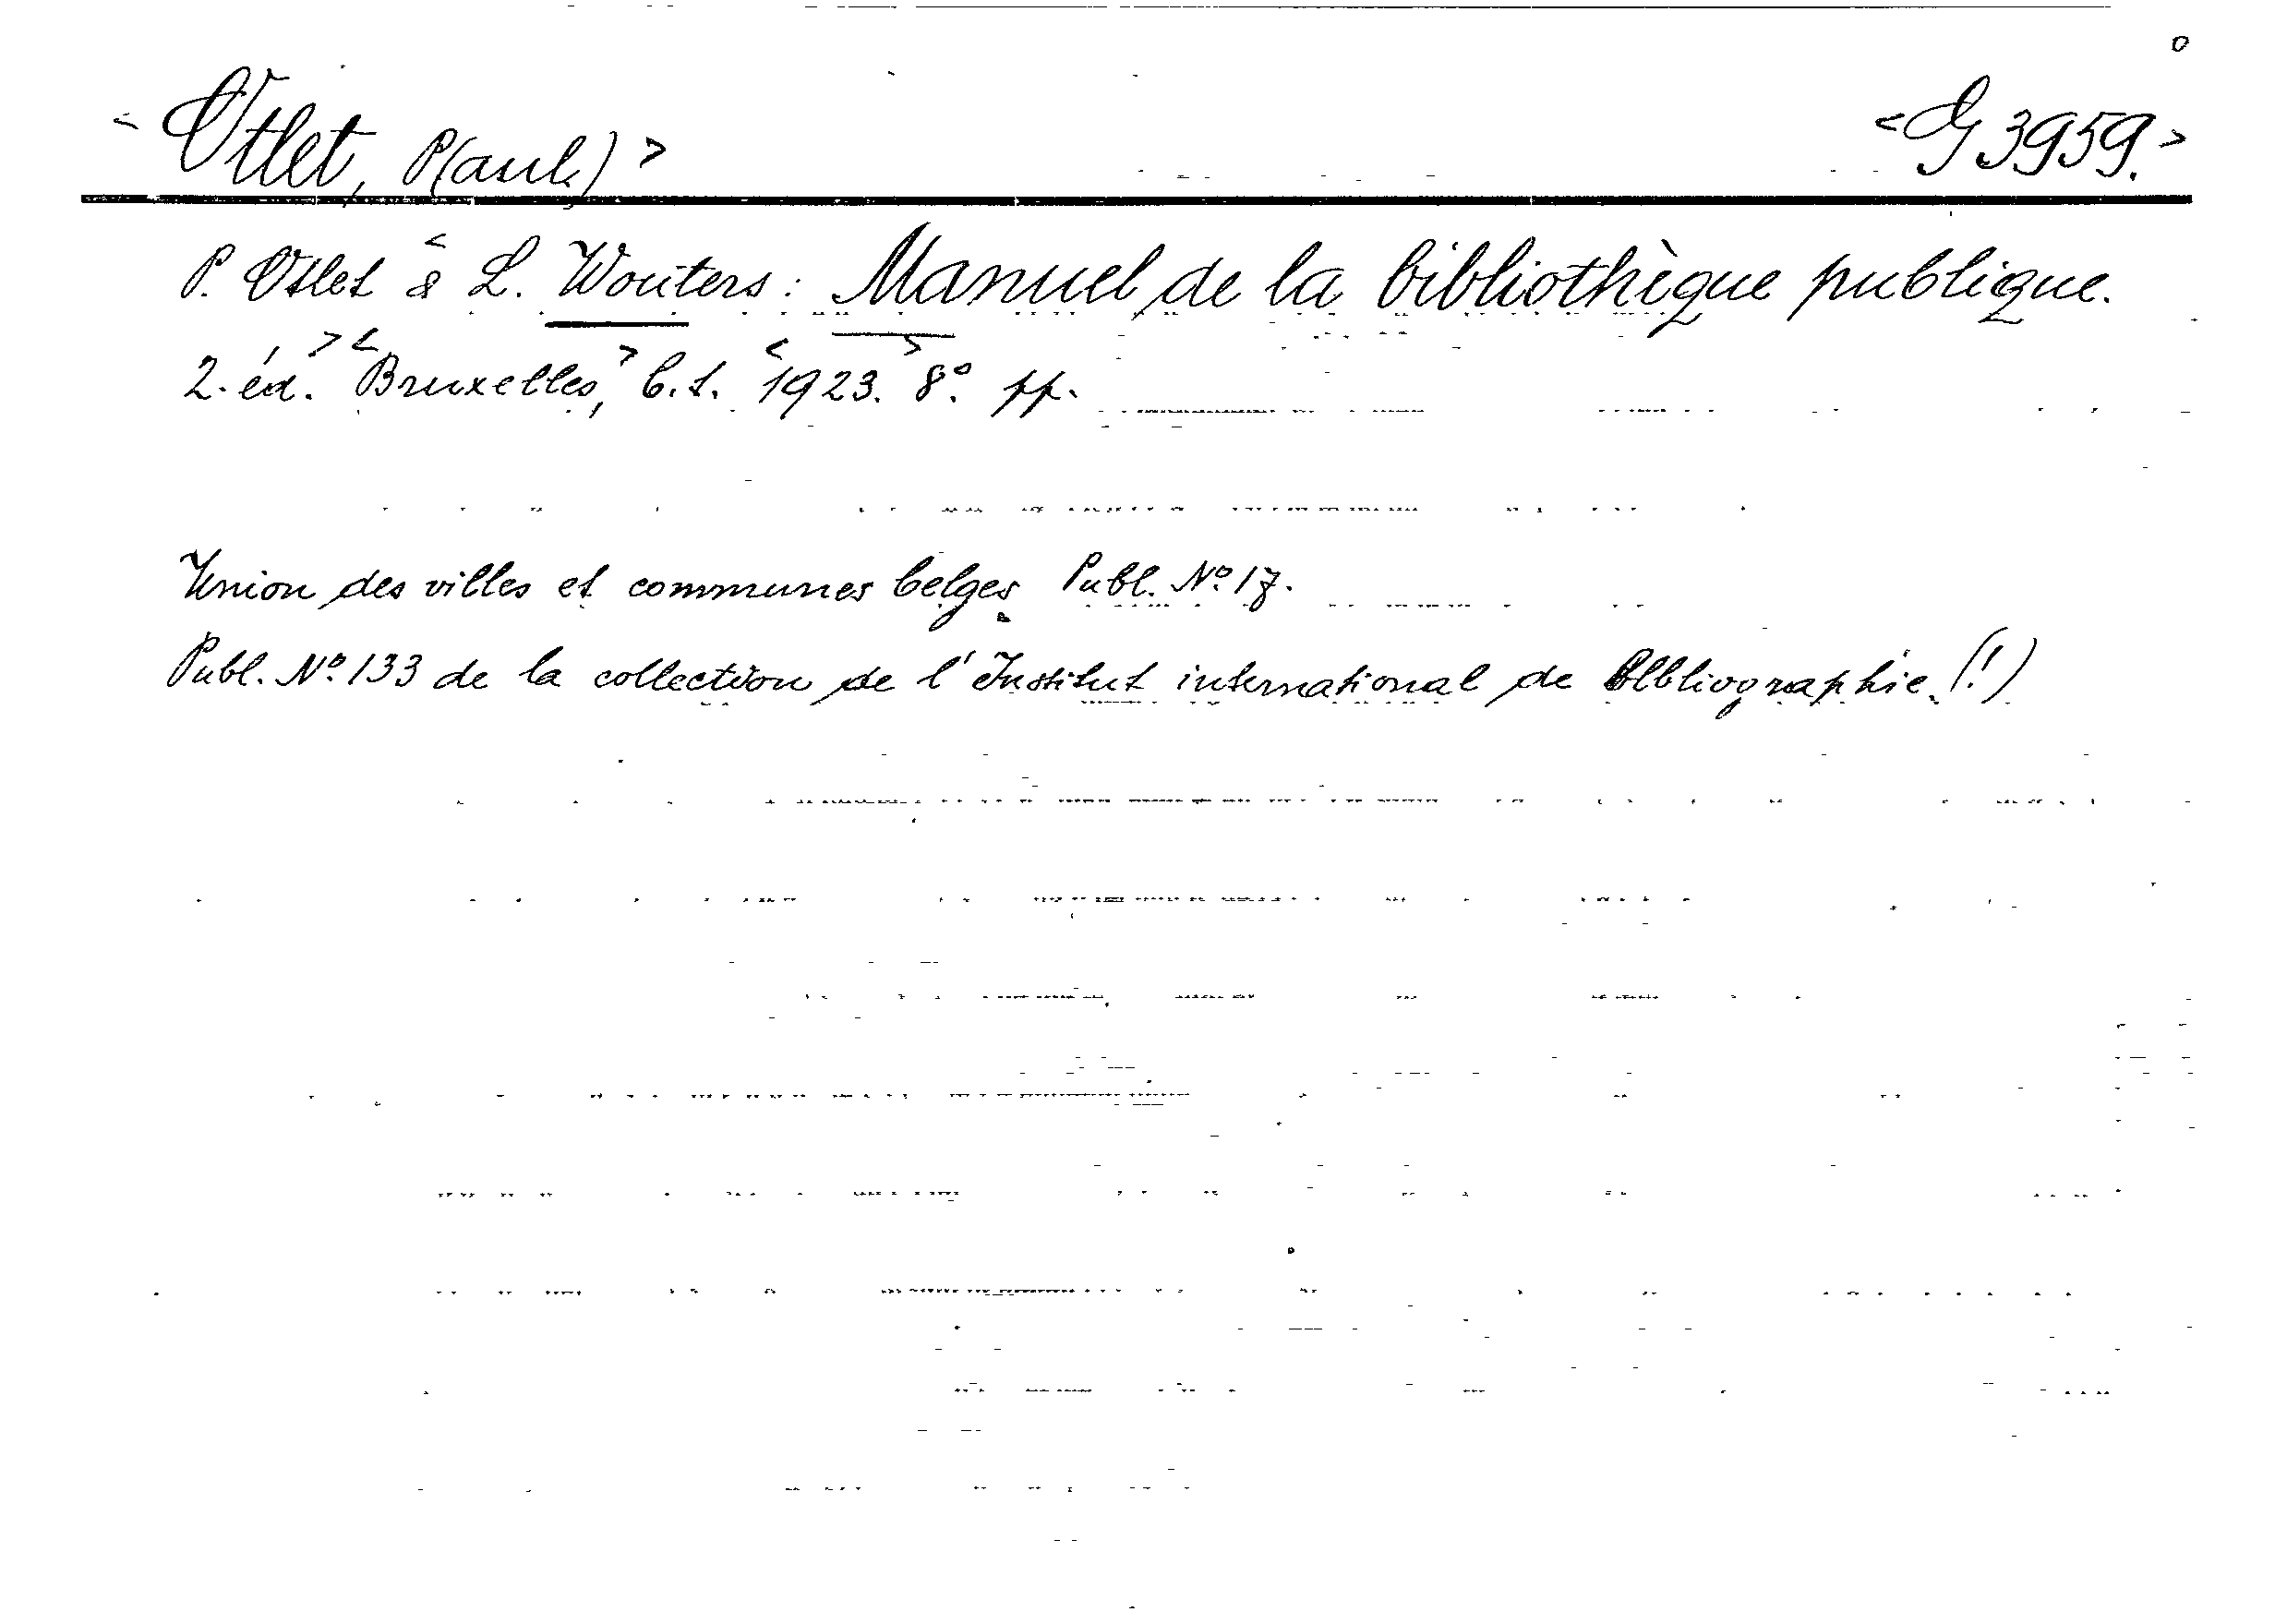 <Otlet, P(aul.)> <G 3959.>
P. Otlet & L. Wouters: Manuel de la bibliothèque publique.
2. éd. Bruxelles, 1923. 8º. pp.
Union des villes et communes belges. Publ. Nº 17.
Publ. Nº 133 de la collection de l'Institut international de Blbliographie. (!)